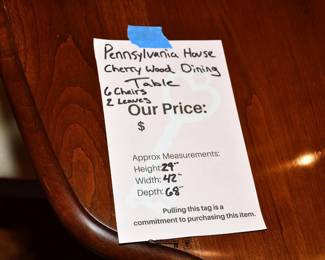 Pennsylvania House
Cherry Wood Dining
Table
6 Chairs
2 Leaves
Our Price:
$
Approx Measurements:
Height: 29"
Width: 42"
Depth: 68"
Pulling this tag is a
commitment to purchasing this item.